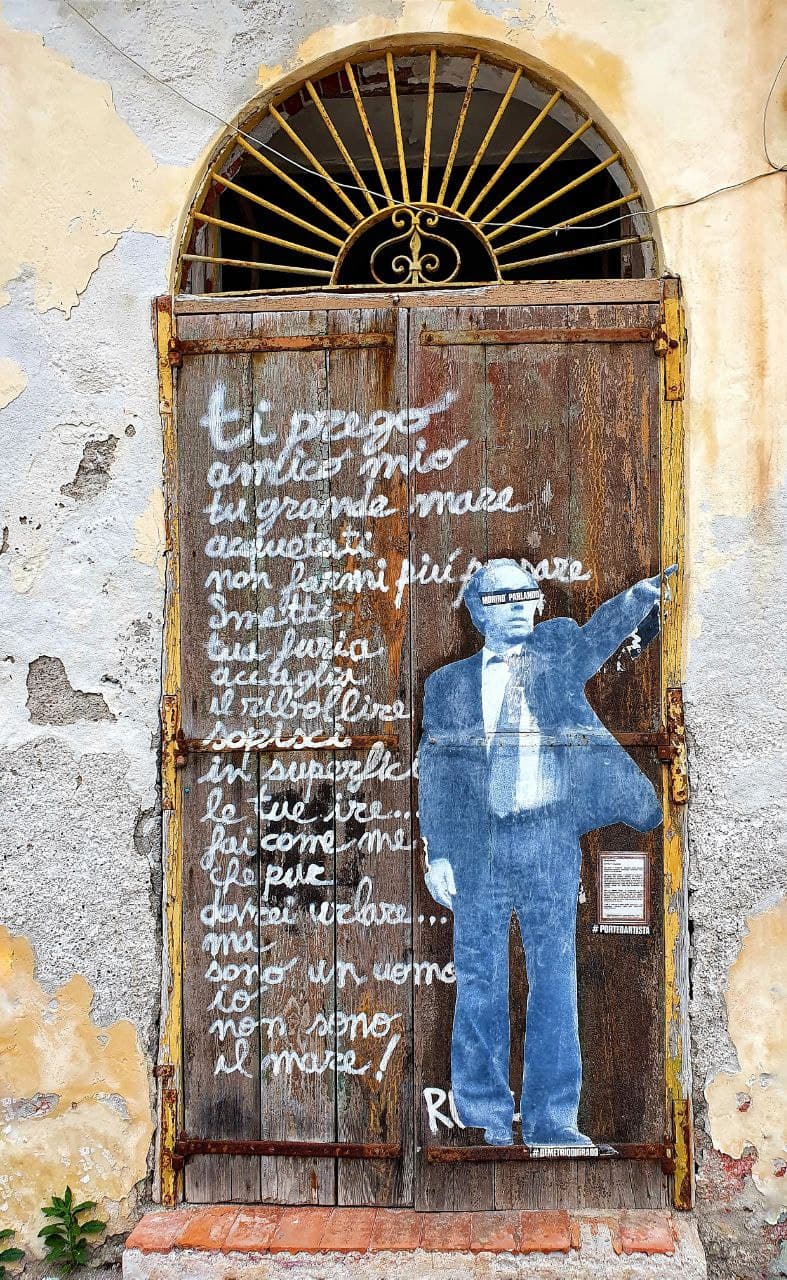 ti prego
amico mio
tu grande mare
acquetati
non farmi più pensare
Smetti
tua furia
accuglia
il ribollire
sopisci
in superfici
le tue ire...
fai come me
che pur
dovrei urlare...
ma
sono un uomo
io
non sono
il mare!
MORIRÒ PARLANDO
#PORTEDARTISTA
#DEMETRIODIGRADO